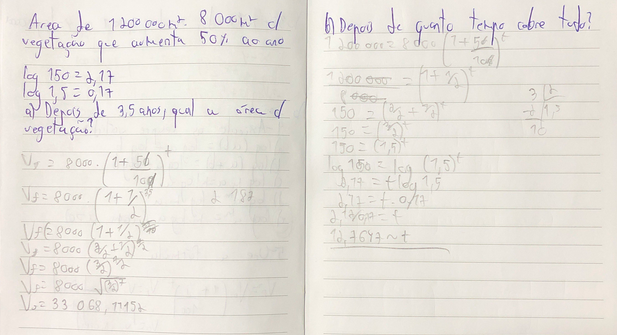 Area de 1200000m². 8000m² d
vegetação que aumenta 50% ao ano
log 150 = 2,17
log 1,5 = 0,17
a) Depois de 3,5 anos, qual a área d
vegetação?
Vf = 8000 . (1 + 50/100)^t
Vf = 8000 (1 + 1/2)
Vf = 8000 (1 + 1/2)
Vf = 8000 (2/2 + 1/2)
Vf = 8000 (3/2)
Vf = 8000
33 068, 11152
b) Depois de quanto tempo cobre tudo?
1 200 000 = 8000 (1 + 50/100)^t
= (1 + 1/2)^t
150 = (2/2 + 1/2)^t
150 = (3/2)^t
150 = (1,5)^t
log 150 = log (1,5)^t
2,17 = t log 1,5
2,17 = t . 0,17
= t
12,7647 ~ t